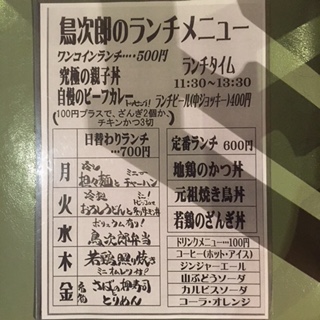 鳥次郎のランチメニュー
ワンコインランチ‥‥500円
究極の親子丼
自慢のビーフカレー
ランチタイム
11:30~13:30
ランチビール(中ジョッキー)400円
(100円プラスで、ざんぎ2個か、
チキンかつ3切
日替わりランチ
…700円
月 冷し 担々麺とミニチャーハン
火 冷製 おろしうどんと
水 ボリューム有り! 鳥次郎弁当
木 若鶏の照り焼き
ミニオムレツ付
金 名物 さばの棒寿司
とりめん
定番ランチ 600円
地鶏のかつ丼
元祖焼き鳥丼
若鶏のざんぎ丼
ドリンクメニュー…100円
コーヒー(ホット・アイス)
ジンジャーエール
山ぶどうソーダ
カルピスソーダ
コーラ・オレンジ